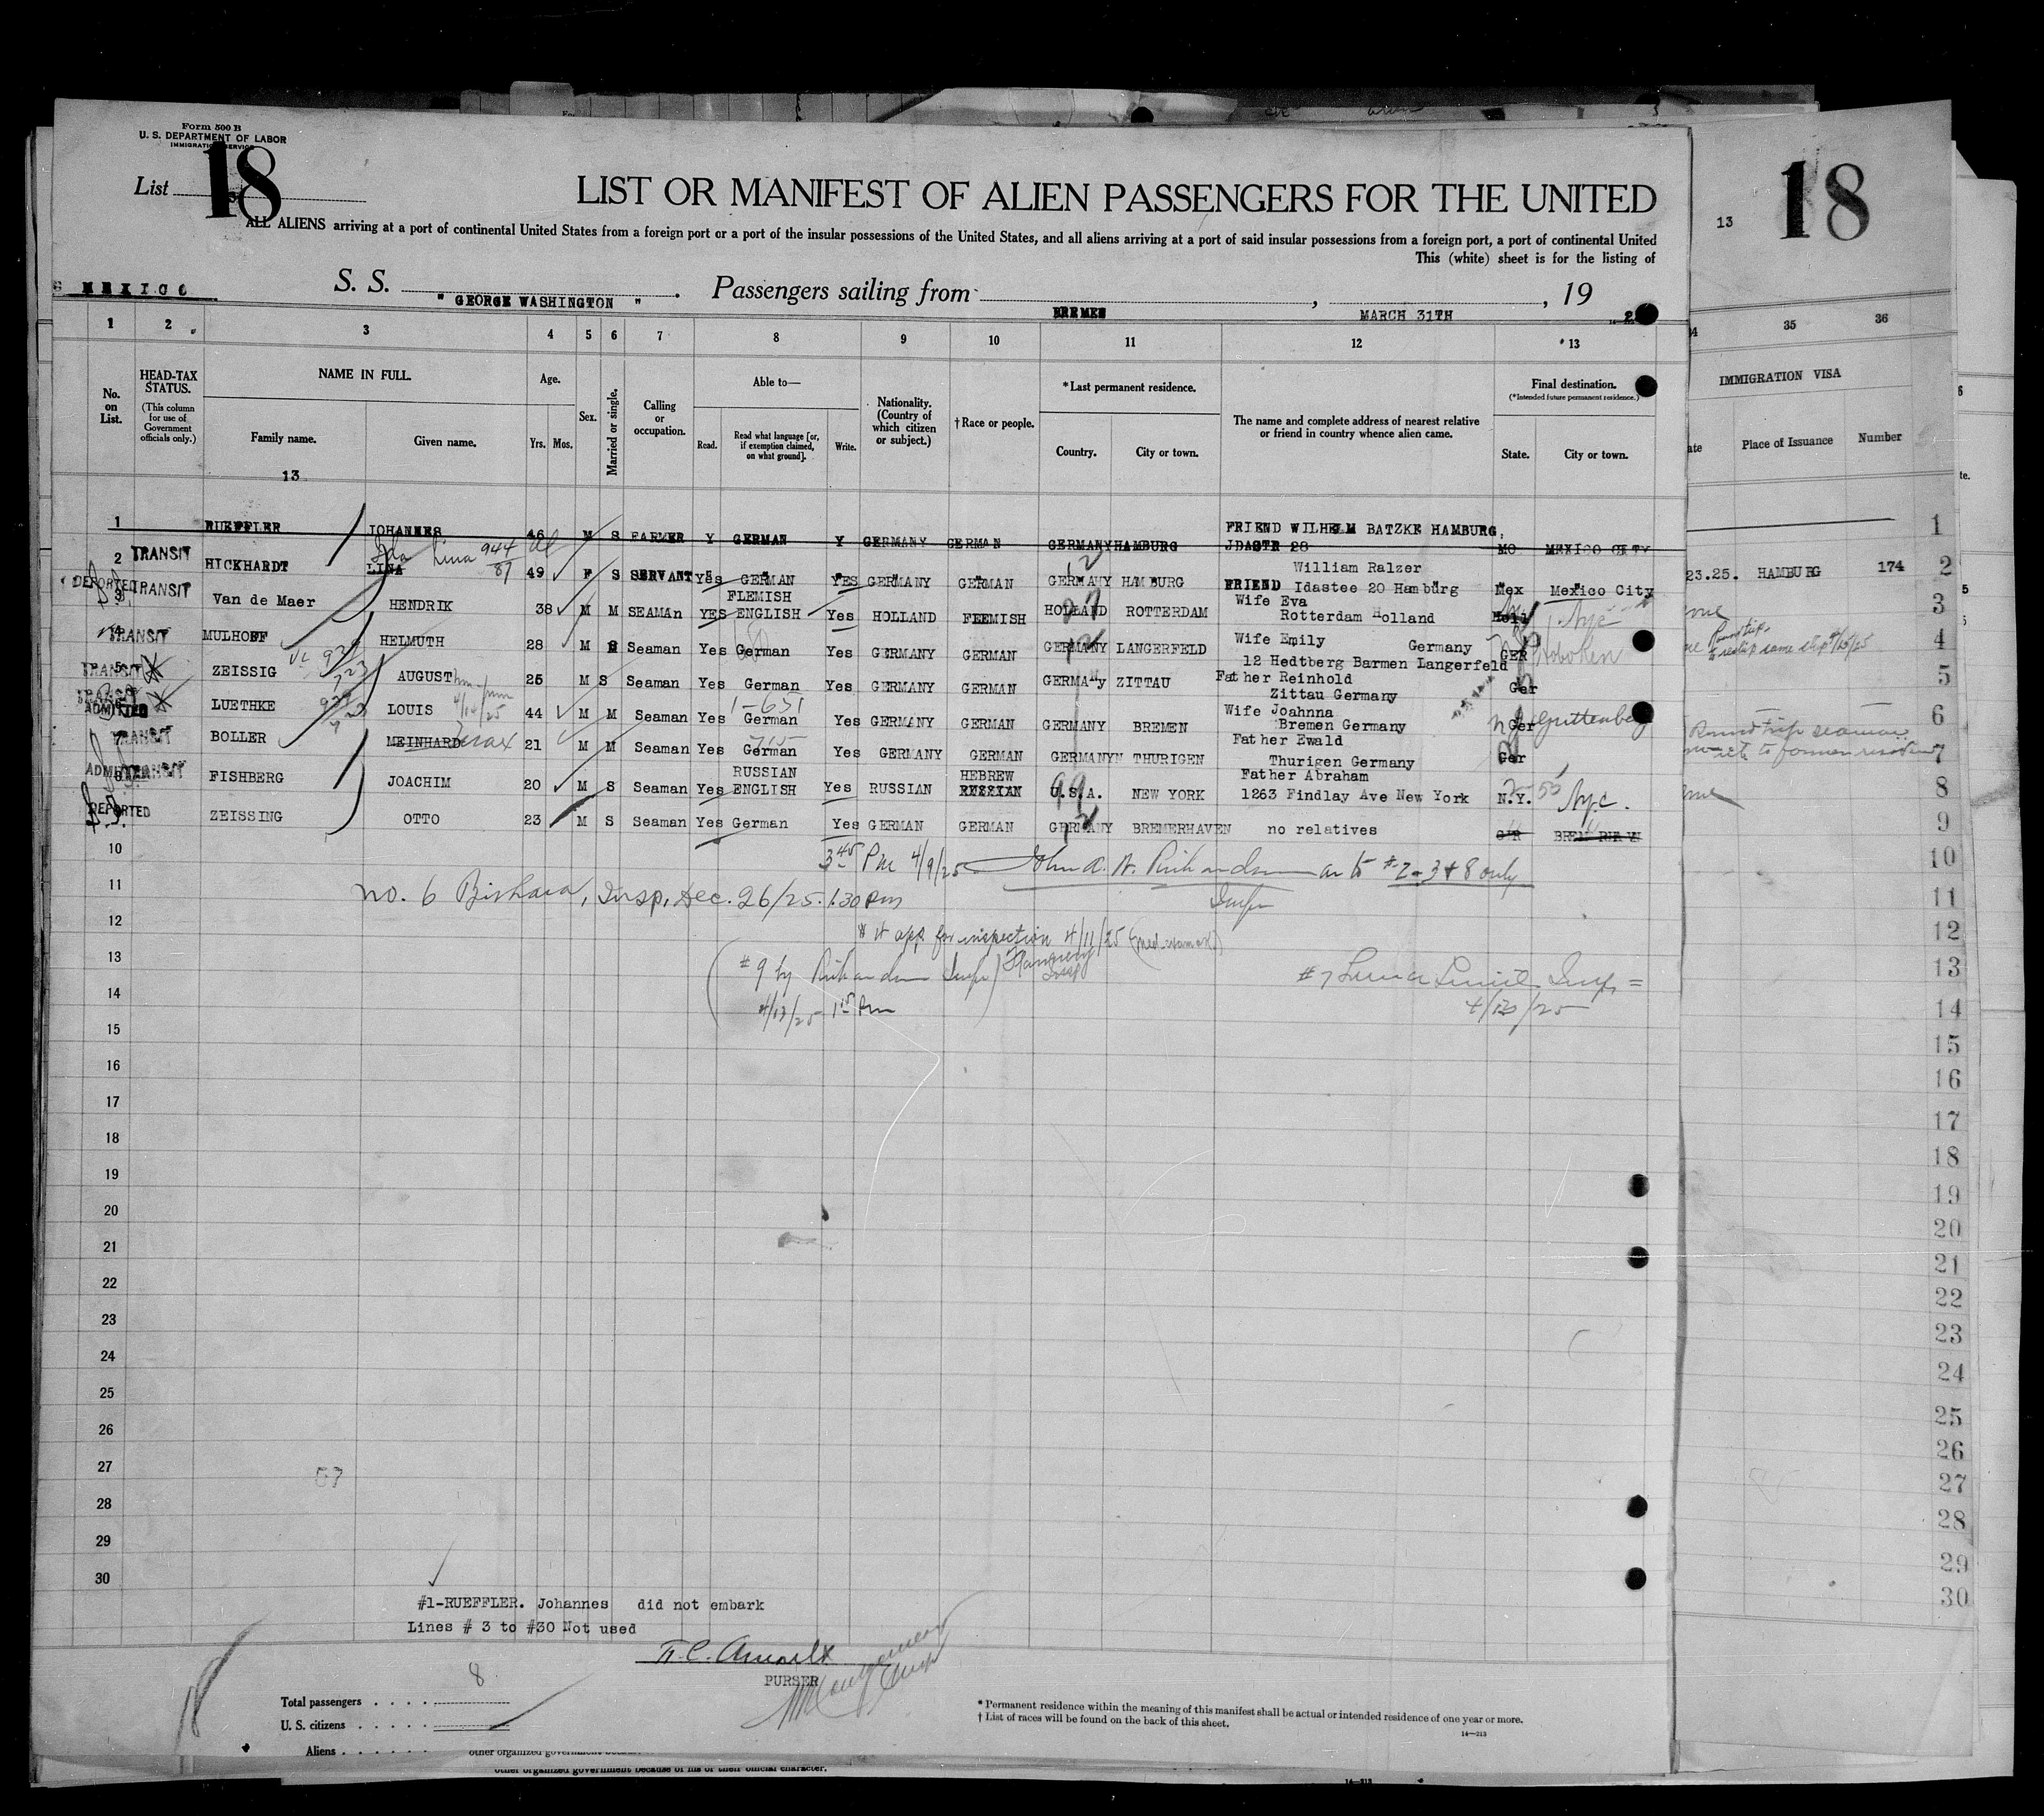 Form 500 B
U. S. DEPARTMENT OF LABOR
IMMIGRATION SERVICE
List 18
18
13
LIST OR MANIFEST OF ALIEN PASSENGERS FOR THE UNITED
ALL ALIENS arriving at a port of continental United States from a foreign port or a port of the insular possessions of the United States, and all aliens arriving at a port of said insular possessions from a foreign port, a port of continental United
This (white) sheet is for the listing of
MEXICO S. S. " GEORGE WASHINGTON " . Passengers sailing from BREMEN , MARCH 31TH , 19 2
1 2 3 4 5 6 7 8 9 10 11 12 13 35 36
No. on List. HEAD-TAX STATUS. (This column for use of Government officials only.) NAME IN FULL. Family name. Given name. Age. Yrs. Mos. Sex. Married or single. Calling or occupation. Able to— Read. Read what language [or, if exemption claimed, on what ground]. Write. Nationality. (Country of which citizen or subject.) † Race or people. * Last permanent residence. Country. City or town. The name and complete address of nearest relative or friend in country whence alien came. Final destination. (* Intended future permanent residence.) State. City or town. IMMIGRATION VISA Place of Issuance Number
13
1 RUEFFLER JOHANNES 46 M S FARMER Y GERMAN Y GERMANY GERMAN GERMANY HAMBURG FRIEND WILHELM BATZKE HAMBURG, JDASTR 28 MO MEXICO CITY 1
2 TRANSIT HICKHARDT LINA Ida Lina 944/87 49 F S SERVANT Yes GERMAN YES GERMANY GERMAN GERMANY HAMBURG William Ralzer FRIEND Idastee 20 Hamburg Mex Mexico City 23.25. HAMBURG 174 2
DEPORTED TRANSIT 3 Van de Maer HENDRIK 38 M M SEAMAn YES FLEMISH ENGLISH Yes HOLLAND FLEMISH HOLLAND ROTTERDAM Wife Eva Rotterdam Holland Holl Nyc 3
TRANSIT MULHOFF HELMUTH 28 M Seaman Yes German Yes GERMANY GERMAN GERMANY LANGERFELD Wife Emily Germany 12 Hedtberg Barmen Langerfeld GER Hoboken 4
TRANSIT 5 ZEISSIG AUGUST 25 M S Seaman Yes German Yes GERMANY GERMAN GERMAny ZITTAU Father Reinhold Zittau Germany Ger 5
TRANSIT ADMITTED LUETHKE LOUIS 44 M M Seaman Yes 1-631 German Yes GERMANY GERMAN GERMANY BREMEN Wife Joahnna Bremen Germany Ger Guttenberg 6
TRANSIT 7 BOLLER MEINHARD Max 21 M M Seaman Yes 715 German Yes GERMANY GERMAN GERMANYN THURIGEN Father Ewald Thurigen Germany Ger 7
ADMITTED TRANSIT 8 FISHBERG JOACHIM 20 M S Seaman Yes RUSSIAN ENGLISH Yes RUSSIAN HEBREW RUSSIAN U.S.A. NEW YORK Father Abraham 1263 Findlay Ave New York N.Y. Nyc. 8
DEPORTED ZEISSING OTTO 23 M S Seaman Yes German Yes GERMAN GERMAN GERMANY BREMERHAVEN no relatives GER 9
10 3 45 Pm 4/9/25 John A. W. Richardson as to #2-3 & 8 only 10
11 no. 6 Bishara, Insp, Dec. 26/25. 1.30 pm Inspr 11
12 # 4 app for inspection 4/11/25 12
13 # 9 by Richardson Inspr #7 Insp. 13
14 4/13/25 1 15 Pm 4/13/25 14
15 15
16 16
17 17
18 18
19 19
20 20
21 21
22 22
23 23
24 24
25 25
26 26
27 57 27
28 28
29 29
30 30
#1-RUEFFLER. Johannes did not embark
Lines # 3 to #30 Not used
PURSER
18
Total passengers . . . . 8
U. S. citizens . . . . .
Aliens . . . . . .
* Permanent residence within the meaning of this manifest shall be actual or intended residence of one year or more.
† List of races will be found on the back of this sheet.
14—213
other organized government because of his or their official character.